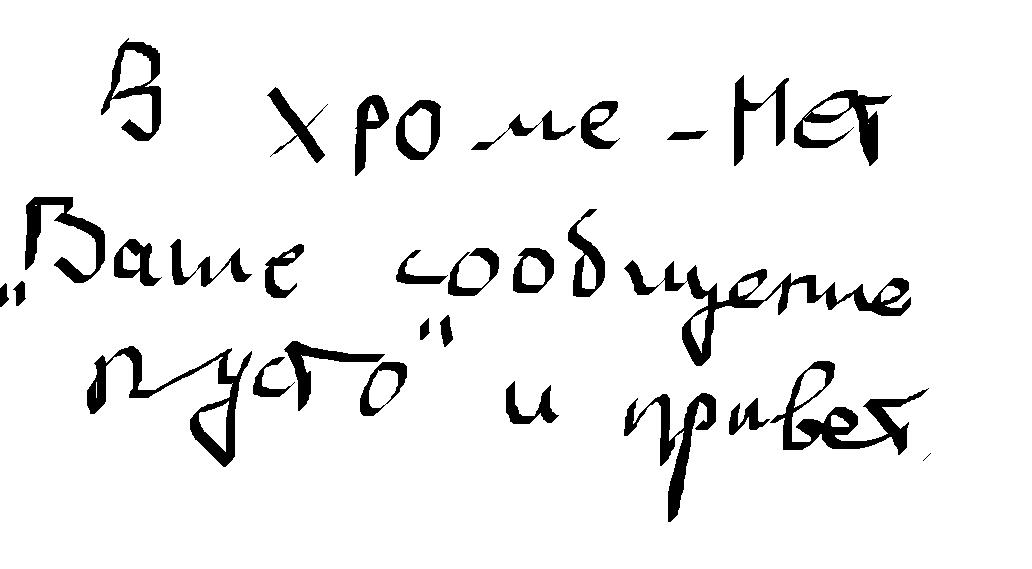 В хроме - Нет
„Ваше сообщение
пусто" и привет